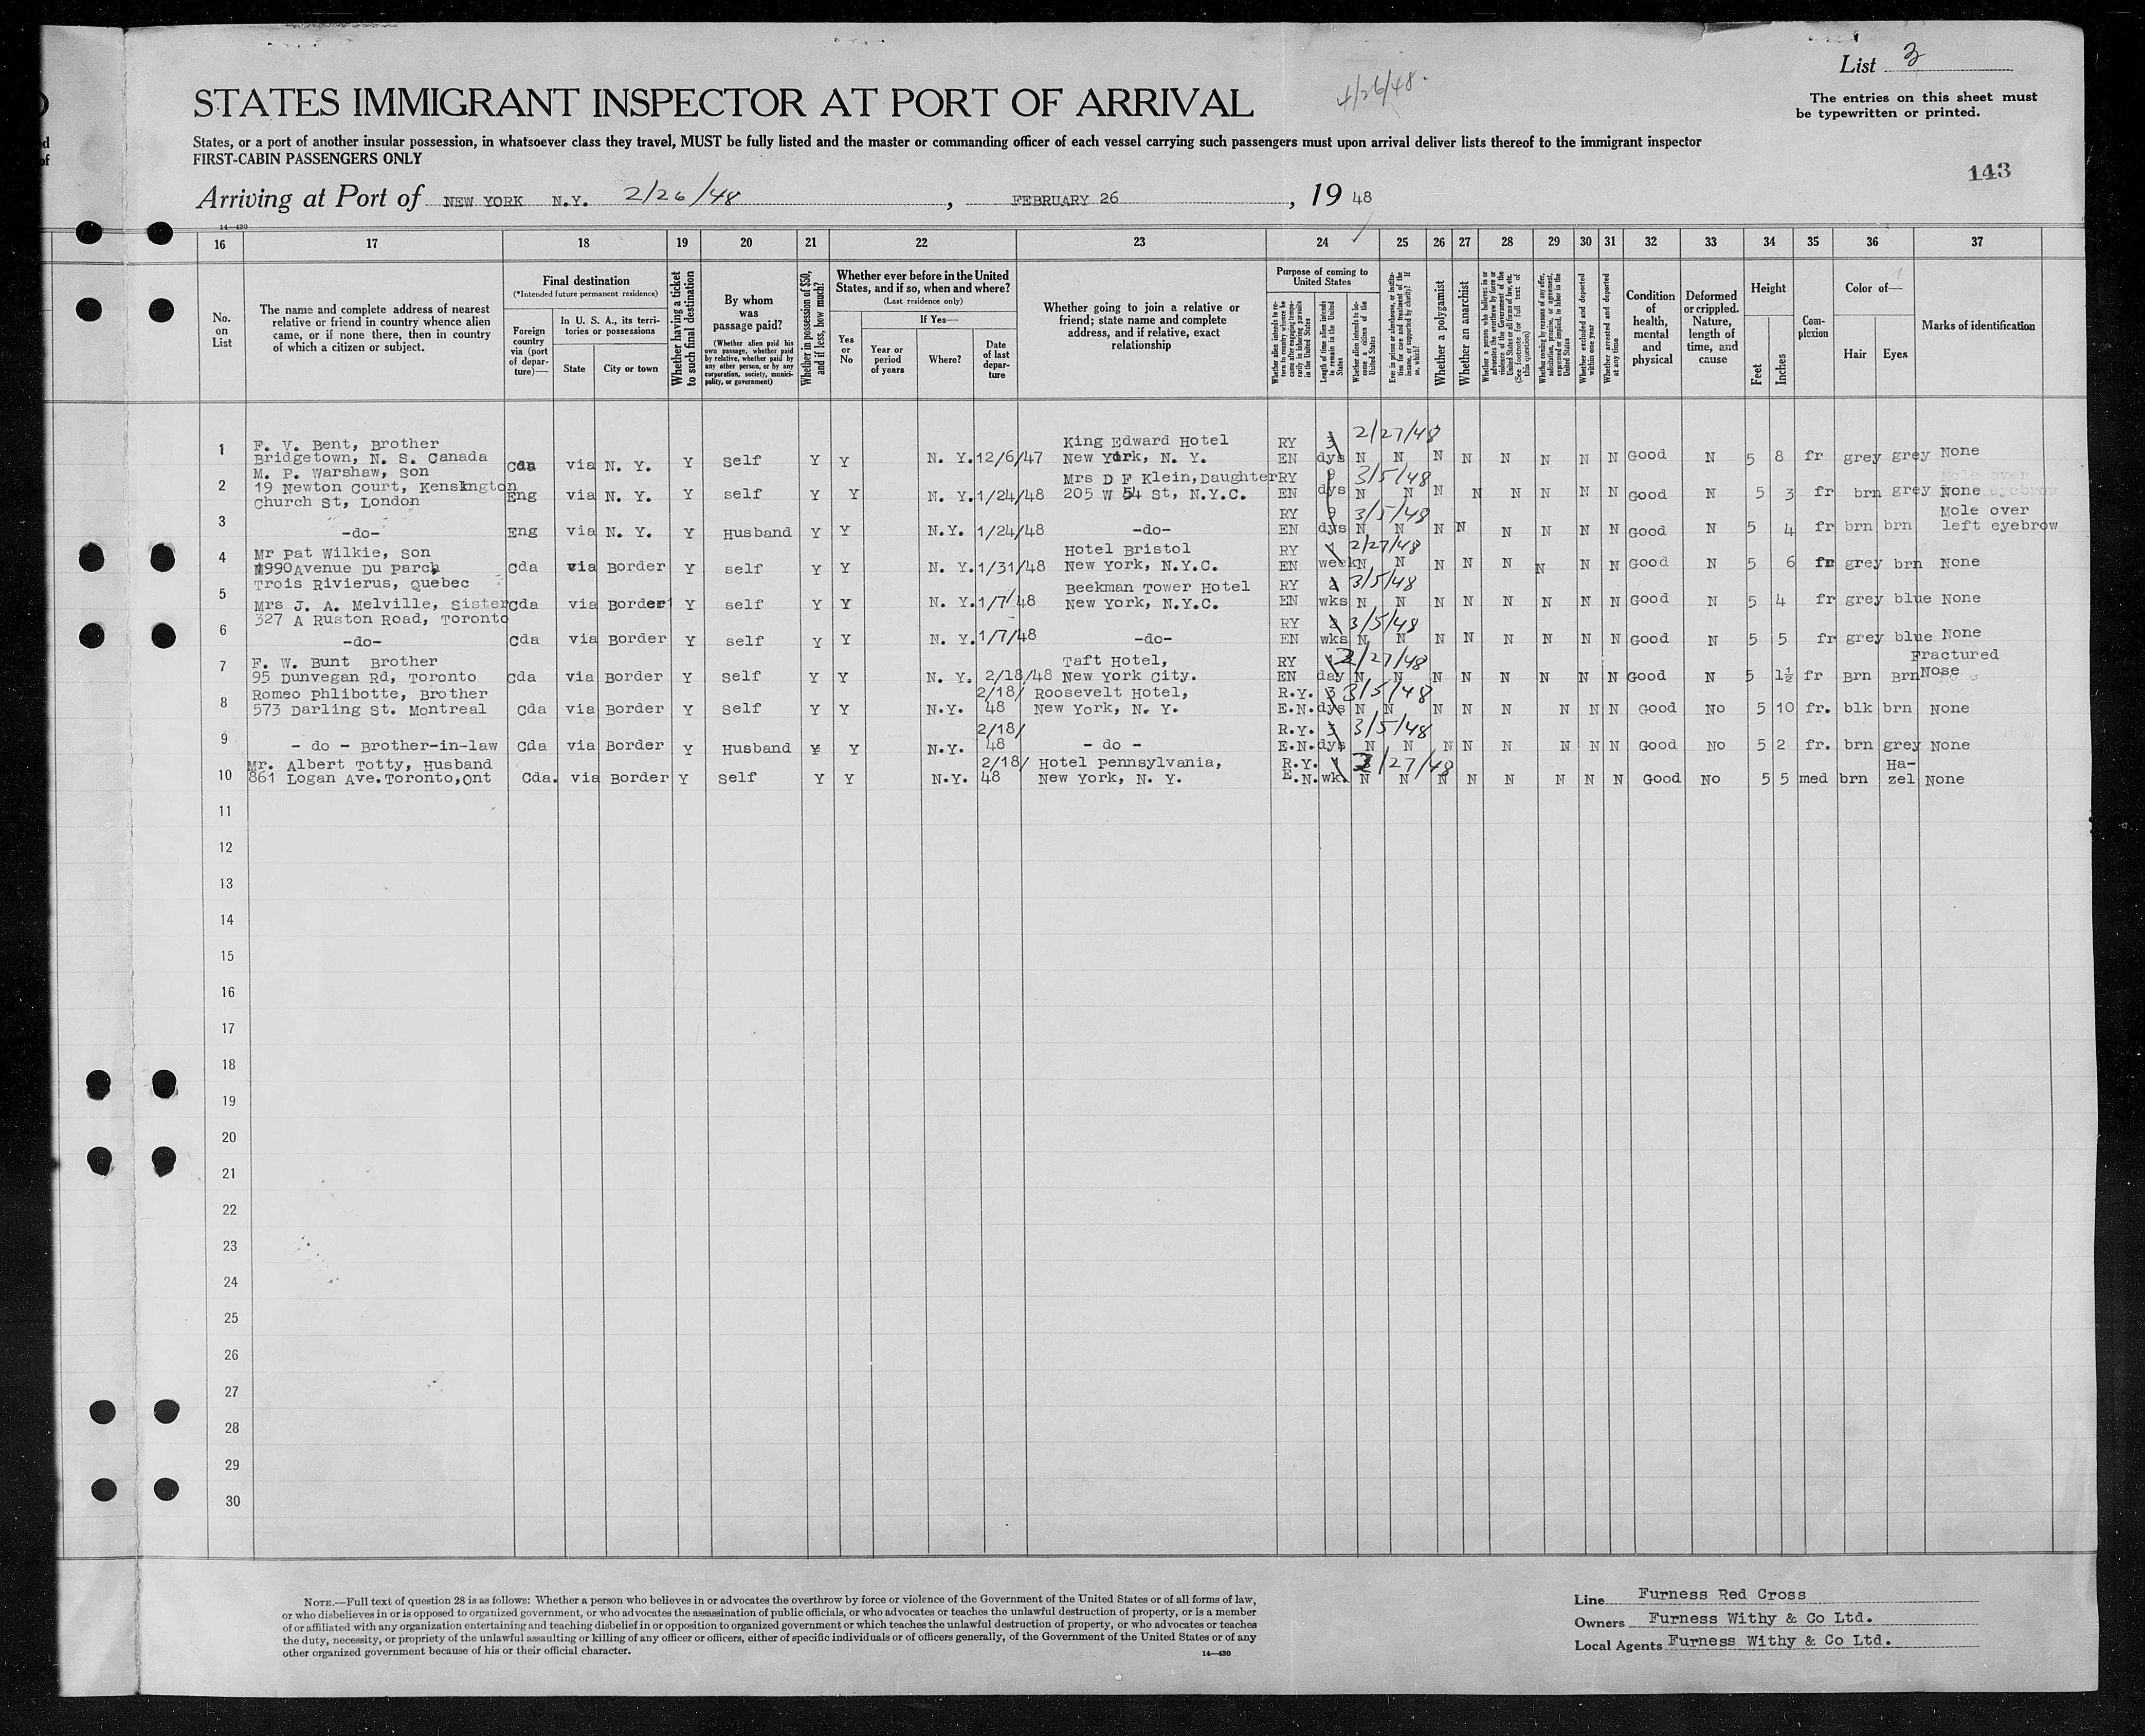 List 3
STATES IMMIGRANT INSPECTOR AT PORT OF ARRIVAL
4/26/48.
The entries on this sheet must
be typewritten or printed.
States, or a port of another insular possession, in whatsoever class they travel, MUST be fully listed and the master or commanding officer of each vessel carrying such passengers must upon arrival deliver lists thereof to the immigrant inspector
FIRST-CABIN PASSENGERS ONLY
143
Arriving at Port of NEW YORK N.Y. 2/26/48, FEBRUARY 26, 19 48
14—430
16 17 18 19 20 21 22 23 24 25 26 27 28 29 30 31 32 33 34 35 36 37
No. on List
The name and complete address of nearest relative or friend in country whence alien came, or if none there, then in country of which a citizen or subject.
Final destination
(*Intended future permanent residence)
Foreign country via (port of departure)—
In U. S. A., its territories or possessions
State
City or town
Whether having a ticket to such final destination
By whom was passage paid?
(Whether alien paid his own passage, whether paid by relative, whether paid by any other person, or by any corporation, society, municipality, or government)
Whether in possession of $50, and if less, how much?
Whether ever before in the United States, and if so, when and where?
(Last residence only)
Yes or No
If Yes—
Year or period of years
Where?
Date of last departure
Whether going to join a relative or friend; state name and complete address, and if relative, exact relationship
Purpose of coming to United States
Whether alien intends to return to country whence he came after engaging temporarily in laboring pursuits in the United States
Length of time alien intends to remain in the United States
Whether alien intends to become a citizen of the United States
Ever in prison or almshouse, or institution for care and treatment of the insane, or supported by charity? If so, which?
Whether a polygamist
Whether an anarchist
Whether a person who believes in or advocates the overthrow by force or violence of the Government of the United States or all forms of law, etc. (See footnote for full text of this question)
Whether coming by reason of any offer, solicitation, promise, or agreement, expressed or implied, to labor in the United States
Whether excluded and deported within one year
Whether arrested and deported at any time
Condition of health, mental and physical
Deformed or crippled. Nature, length of time, and cause
Height
Feet
Inches
Complexion
Color of—
Hair
Eyes
Marks of identification
1 F. V. Bent, Brother Bridgetown, N. S. Canada Cda via N. Y. Y Self Y Y N. Y. 12/6/47 King Edward Hotel New York, N. Y. RY EN 3 dys 2/27/48 N N N N N N N N Good N 5 8 fr grey grey None
2 M. P. Warshaw, Son 19 Newton Court, Kensington Church St, London Eng via N. Y. Y self Y Y N. Y. 1/24/48 Mrs D F Klein, Daughter 205 W 54 St, N.Y.C. RY EN 9 dys 3/5/48 N N N N N N N N Good N 5 3 fr brn grey None
3 -do- Eng via N. Y. Y Husband Y Y N.Y. 1/24/48 -do- RY EN 9 dys 3/5/48 N N N N N N N N Good N 5 4 fr brn brn Mole over left eyebrow
4 Mr Pat Wilkie, Son 1990 Avenue Du Parc Trois Rivierus, Quebec Cda via Border Y self Y Y N. Y. 1/31/48 Hotel Bristol New York, N.Y.C. RY EN 1 week 2/27/48 N N N N N N N N Good N 5 6 fr grey brn None
5 Mrs J. A. Melville, Sister 327 A Ruston Road, Toronto Cda via Border Y self Y Y N. Y. 1/7/48 Beekman Tower Hotel New York, N.Y.C. RY EN 2 wks 3/5/48 N N N N N N N N Good N 5 4 fr grey blue None
6 -do- Cda via Border Y self Y Y N. Y. 1/7/48 -do- RY EN 2 wks 3/5/48 N N N N N N N N Good N 5 5 fr grey blue None
7 F. W. Bunt Brother 95 Dunvegan Rd, Toronto Cda via Border Y Self Y Y N. Y. 2/18/48 Taft Hotel, New York City. RY EN 1 day 2/27/48 N N N N N N N N Good N 5 1½ fr Brn Brn Fractured Nose
8 Romeo Phlibotte, Brother 573 Darling St. Montreal Cda via Border Y Self Y Y N.Y. 2/18/48 Roosevelt Hotel, New York, N. Y. R.Y. E.N. 3 dys 3/5/48 N N N N N N N N Good No 5 10 fr. blk brn None
9 - do - Brother-in-law Cda via Border Y Husband Y Y N.Y. 2/18/48 - do - R.Y. E.N. 3 dys 3/5/48 N N N N N N N N Good No 5 2 fr. brn grey None
10 Mr. Albert Totty, Husband 861 Logan Ave. Toronto, Ont Cda. via Border Y Self Y Y N.Y. 2/18/48 Hotel Pennsylvania, New York, N. Y. R.Y. E.N. 1 wk. 2/27/48 N N N N N N N N Good No 5 5 med brn Ha-zel None
11
12
13
14
15
16
17
18
19
20
21
22
23
24
25
26
27
28
29
30
NOTE.—Full text of question 28 is as follows: Whether a person who believes in or advocates the overthrow by force or violence of the Government of the United States or of all forms of law,
or who disbelieves in or is opposed to organized government, or who advocates the assassination of public officials, or who advocates or teaches the unlawful destruction of property, or is a member
of or affiliated with any organization entertaining and teaching disbelief in or opposition to organized government or which teaches the unlawful destruction of property, or who advocates or teaches
the duty, necessity, or propriety of the unlawful assaulting or killing of any officer or officers, either of specific individuals or of officers generally, of the Government of the United States or of any
other organized government because of his or their official character.
14—430
Line Furness Red Cross
Owners Furness Withy & Co Ltd.
Local Agents Furness Withy & Co Ltd.